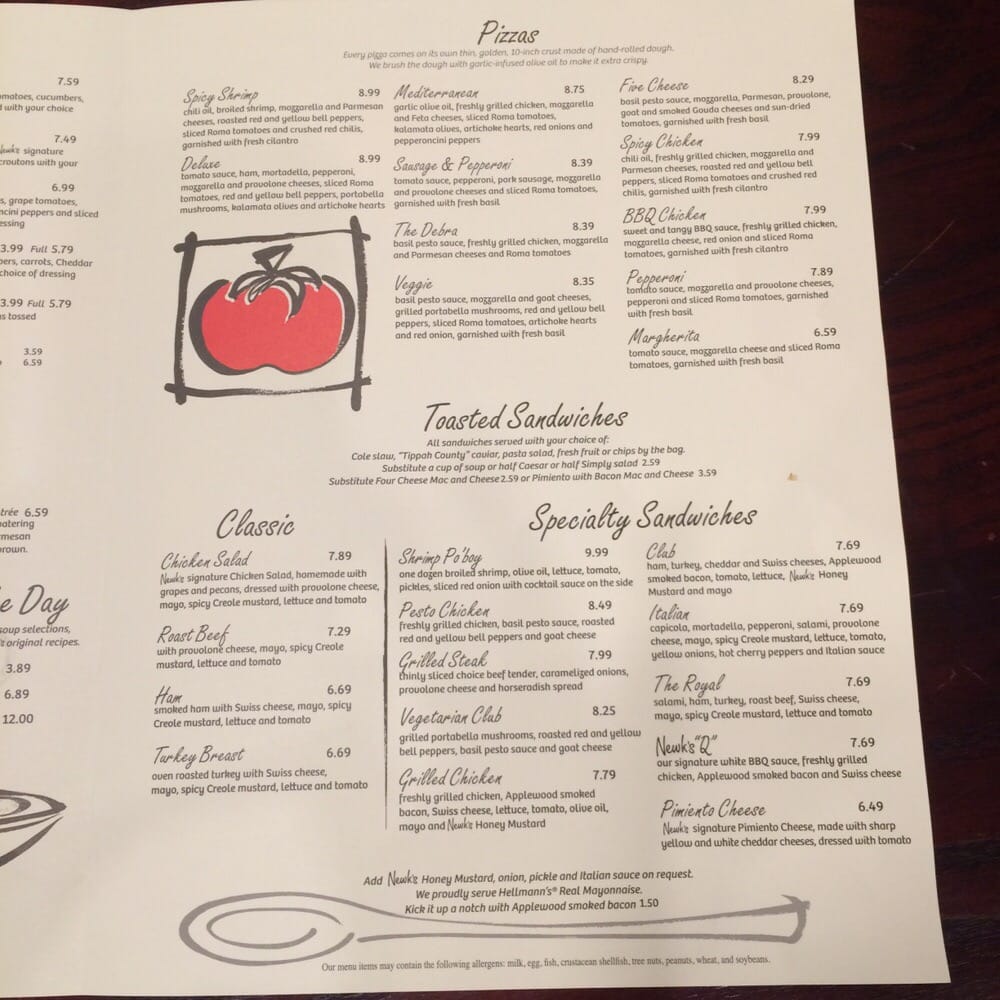 7.59
omatoes, cucumbers,
d with your choice
7.49
Newk's signature
croutons with your
6.99
s, grape tomatoes,
ncini peppers and sliced
essing
3.99 Full 5.79
pers, carrots, Cheddar
choice of dressing
3.99 Full 5.79
as tossed
3.59
6.59
trée 6.59
atering
mesan
brown.
e Day
soup selections,
's original recipes.
3.89
6.89
12.00
Pizzas
Every pizza comes on its own thin, golden, 10-inch crust made of hand-rolled dough.
We brush the dough with garlic-infused olive oil to make it extra crispy.
Spicy Shrimp 8.99
chili oil, broiled shrimp, mozzarella and Parmesan
cheeses, roasted red and yellow bell peppers,
sliced Roma tomatoes and crushed red chilis,
garnished with fresh cilantro
Deluxe 8.99
tomato sauce, ham, mortadella, pepperoni,
mozzarella and provolone cheeses, sliced Roma
tomatoes, red and yellow bell peppers, portabella
mushrooms, kalamata olives and artichoke hearts
Mediterranean 8.75
garlic olive oil, freshly grilled chicken, mozzarella
and Feta cheeses, sliced Roma tomatoes,
kalamata olives, artichoke hearts, red onions and
pepperoncini peppers
Sausage & Pepperoni 8.39
tomato sauce, pepperoni, pork sausage, mozzarella
and provolone cheeses and sliced Roma tomatoes,
garnished with fresh basil
The Debra 8.39
basil pesto sauce, freshly grilled chicken, mozzarella
and Parmesan cheeses and Roma tomatoes
Veggie 8.35
basil pesto sauce, mozzarella and goat cheeses,
grilled portabella mushrooms, red and yellow bell
peppers, sliced Roma tomatoes, artichoke hearts
and red onion, garnished with fresh basil
Five Cheese 8.29
basil pesto sauce, mozzarella, Parmesan, provolone,
goat and smoked Gouda cheeses and sun-dried
tomatoes, garnished with fresh basil
Spicy Chicken 7.99
chili oil, freshly grilled chicken, mozzarella and
Parmesan cheeses, roasted red and yellow bell
peppers, sliced Roma tomatoes and crushed red
chilis, garnished with fresh cilantro
BBQ Chicken 7.99
sweet and tangy BBQ sauce, freshly grilled chicken,
mozzarella cheese, red onion and sliced Roma
tomatoes, garnished with fresh cilantro
Pepperoni 7.89
tomato sauce, mozzarella and provolone cheeses,
pepperoni and sliced Roma tomatoes, garnished
with fresh basil
Margherita 6.59
tomato sauce, mozzarella cheese and sliced Roma
tomatoes, garnished with fresh basil
Toasted Sandwiches
All sandwiches served with your choice of:
Cole slaw, "Tippah County" caviar, pasta salad, fresh fruit or chips by the bag.
Substitute a cup of soup or half Caesar or half Simply salad 2.59
Substitute Four Cheese Mac and Cheese 2.59 or Pimiento with Bacon Mac and Cheese 3.59
Classic
Chicken Salad 7.89
Newk's signature Chicken Salad, homemade with
grapes and pecans, dressed with provolone cheese,
mayo, spicy Creole mustard, lettuce and tomato
Roast Beef 7.29
with provolone cheese, mayo, spicy Creole
mustard, lettuce and tomato
Ham 6.69
smoked ham with Swiss cheese, mayo, spicy
Creole mustard, lettuce and tomato
Turkey Breast 6.69
oven roasted turkey with Swiss cheese,
mayo, spicy Creole mustard, lettuce and tomato
Specialty Sandwiches
Shrimp Po'boy 9.99
one dozen broiled shrimp, olive oil, lettuce, tomato,
pickles, sliced red onion with cocktail sauce on the side
Pesto Chicken 8.49
freshly grilled chicken, basil pesto sauce, roasted
red and yellow bell peppers and goat cheese
Grilled Steak 7.99
thinly sliced choice beef tender, caramelized onions,
provolone cheese and horseradish spread
Vegetarian Club 8.25
grilled portabella mushrooms, roasted red and yellow
bell peppers, basil pesto sauce and goat cheese
Grilled Chicken 7.79
freshly grilled chicken, Applewood smoked
bacon, Swiss cheese, lettuce, tomato, olive oil,
mayo and Newk's Honey Mustard
Club 7.69
ham, turkey, cheddar and Swiss cheeses, Applewood
smoked bacon, tomato, lettuce, Newk's Honey
Mustard and mayo
Italian 7.69
capicola, mortadella, pepperoni, salami, provolone
cheese, mayo, spicy Creole mustard, lettuce, tomato,
yellow onions, hot cherry peppers and Italian sauce
The Royal 7.69
salami, ham, turkey, roast beef, Swiss cheese,
mayo, spicy Creole mustard, lettuce and tomato
Newk's "Q" 7.69
our signature white BBQ sauce, freshly grilled
chicken, Applewood smoked bacon and Swiss cheese
Pimiento Cheese 6.49
Newk's signature Pimiento Cheese, made with sharp
yellow and white cheddar cheeses, dressed with tomato
Add Newk's Honey Mustard, onion, pickle and Italian sauce on request.
We proudly serve Hellmann's® Real Mayonnaise.
Kick it up a notch with Applewood smoked bacon 1.50
Our menu items may contain the following allergens: milk, egg, fish, crustacean shellfish, tree nuts, peanuts, wheat, and soybeans.